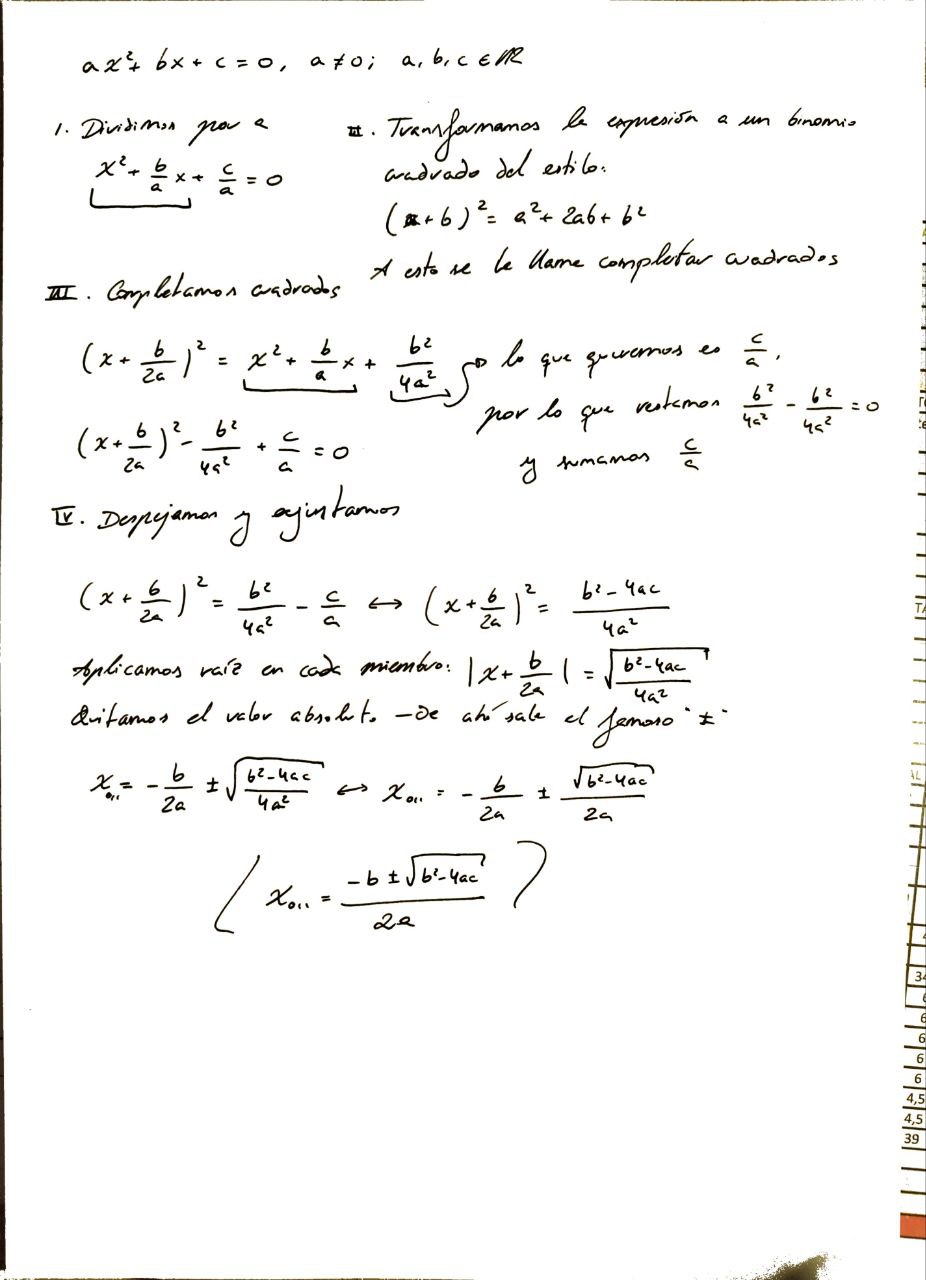 ax² + bx + c = 0, a ≠ 0; a, b, c ∈ ℝ
I. Dividimos por a
x² + b/a x + c/a = 0
II. Transformamos la expresión a un binomio
cuadrado del estilo:
(a + b)² = a² + 2ab + b²
A esto se le llama completar cuadrados
III. Completamos cuadrados
(x + b/2a)² = x² + b/a x + b²/4a² → lo que queremos es c/a,
por lo que restamos b²/4a² - b²/4a² = 0
y sumamos c/a
(x + b/2a)² - b²/4a² + c/a = 0
IV. Despejamos y ajustamos
(x + b/2a)² = b²/4a² - c/a ↔ (x + b/2a)² = (b² - 4ac)/4a²
Aplicamos raíz en cada miembro: |x + b/2a| = √((b² - 4ac)/4a²)
Quitamos el valor absoluto -De ahí sale el famoso "±"
x₀,₁ = - b/2a ± √((b² - 4ac)/4a²) ↔ x₀,₁ = - b/2a ± √(b² - 4ac)/2a
( x₀,₁ = (-b ± √(b² - 4ac))/2a )
34
6
6
6
6
4,5
4,5
39